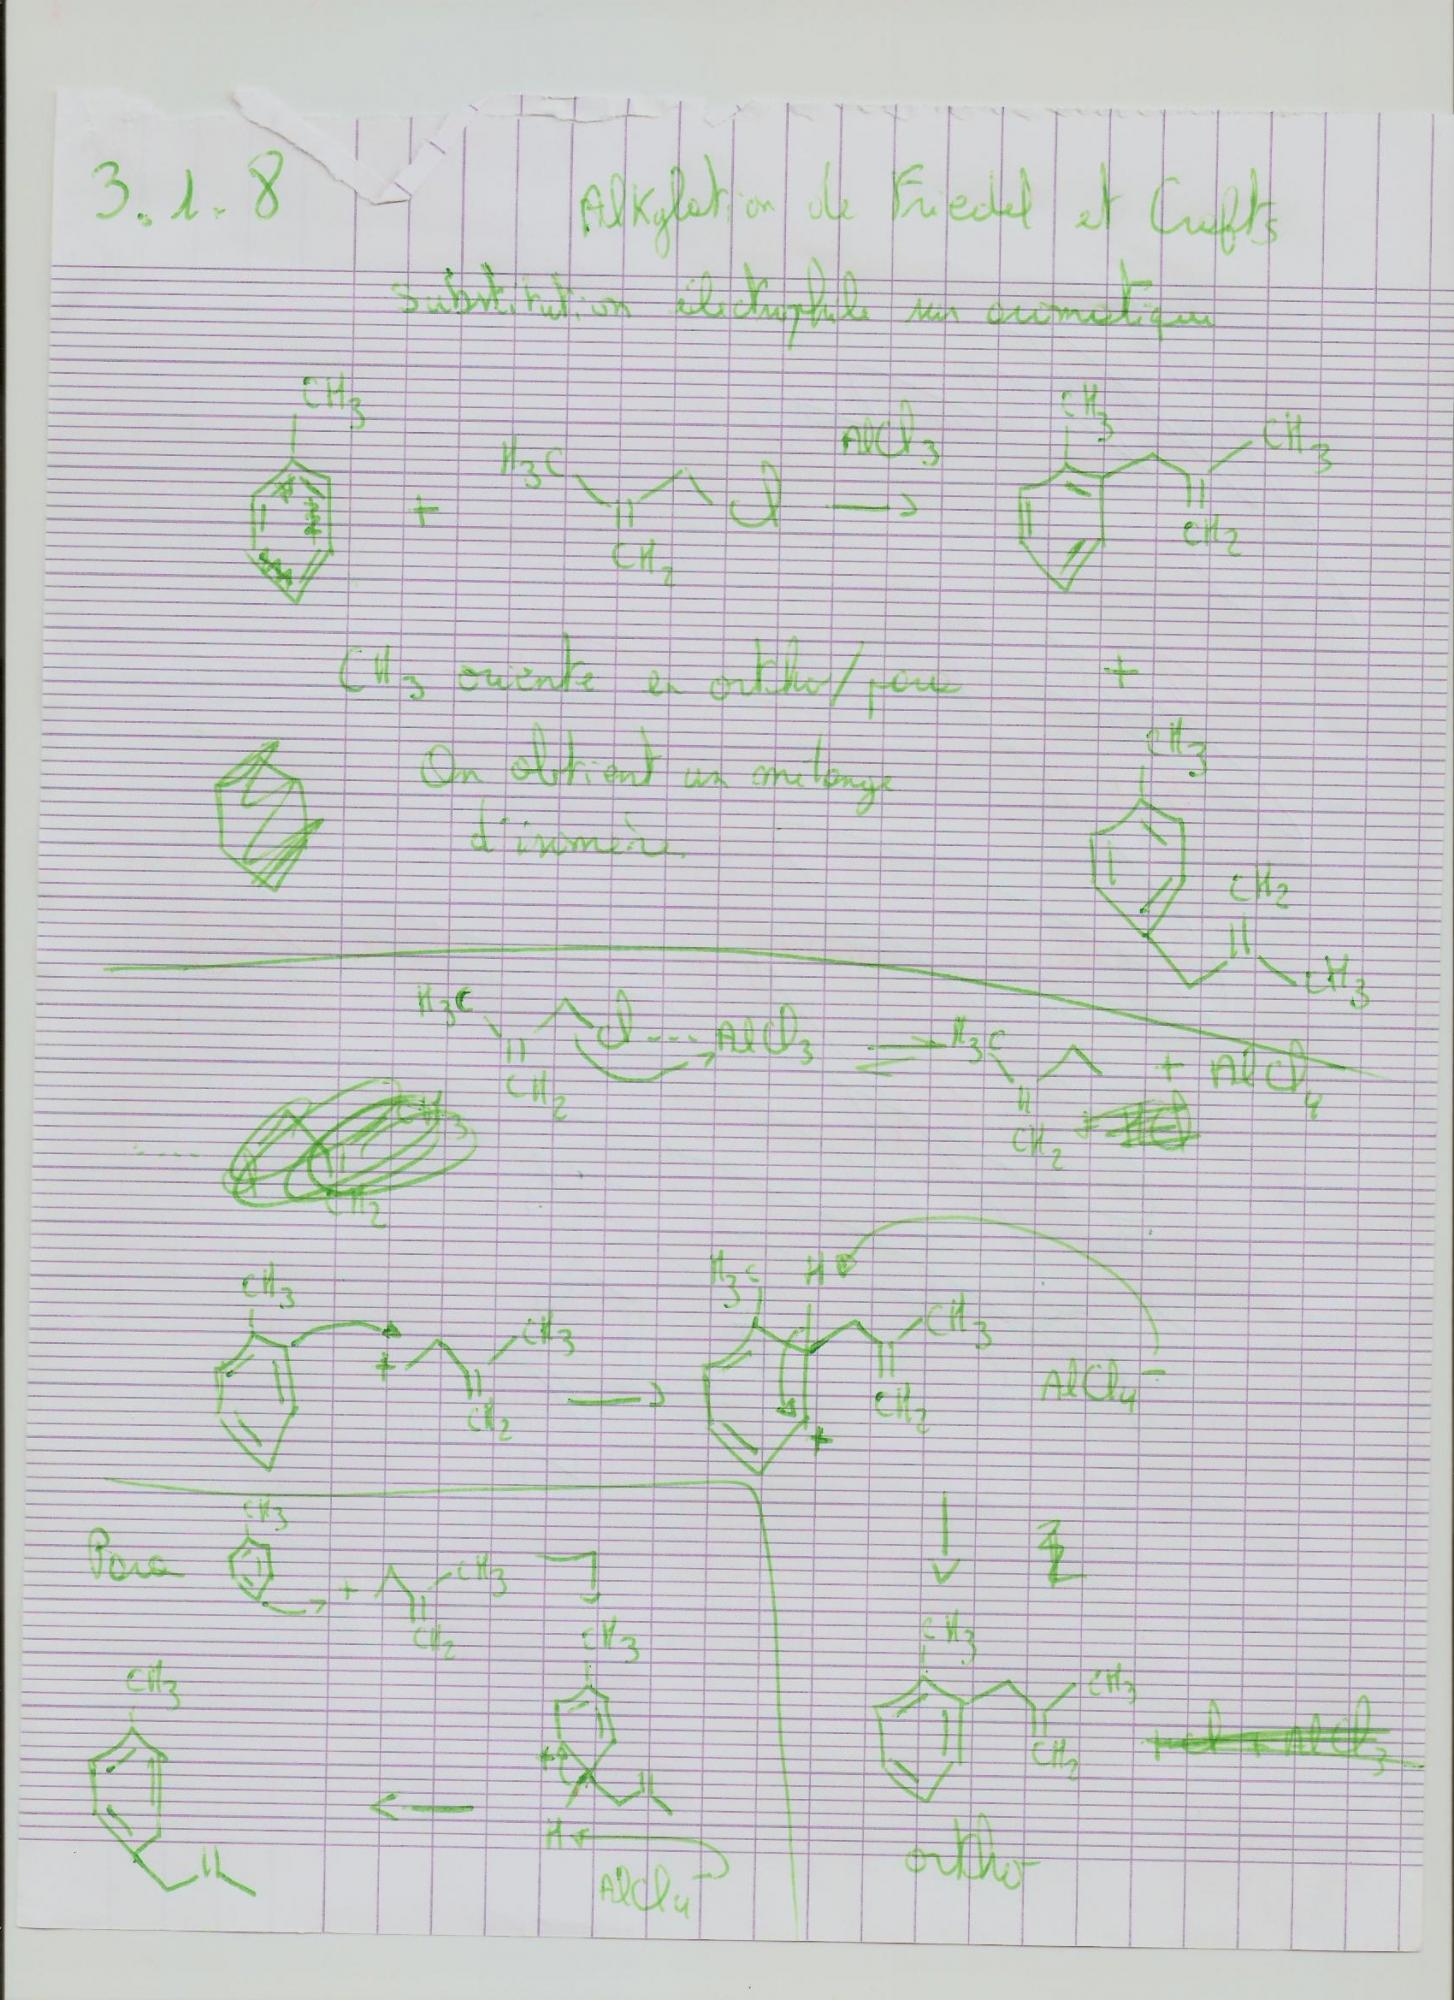 3.1.8 Alkylation de Friedel et Crafts
substitution électrophile sur aromatique
CH3 + H3C CH2 Cl AlCl3 CH3 CH3 CH2
CH3 oriente en ortho/para +
On obtient un mélange
d'isomère
CH3 CH2 CH3
H3C CH2 Cl --- AlCl3 H3C CH2 + AlCl4
CH3
CH2
CH3 + CH3 CH2 H3C H CH3 CH2 + AlCl4-
Para CH3 + CH3 CH2
CH3 + H AlCl4-
CH3
CH3 CH3 CH2 + Cl + AlCl3
ortho